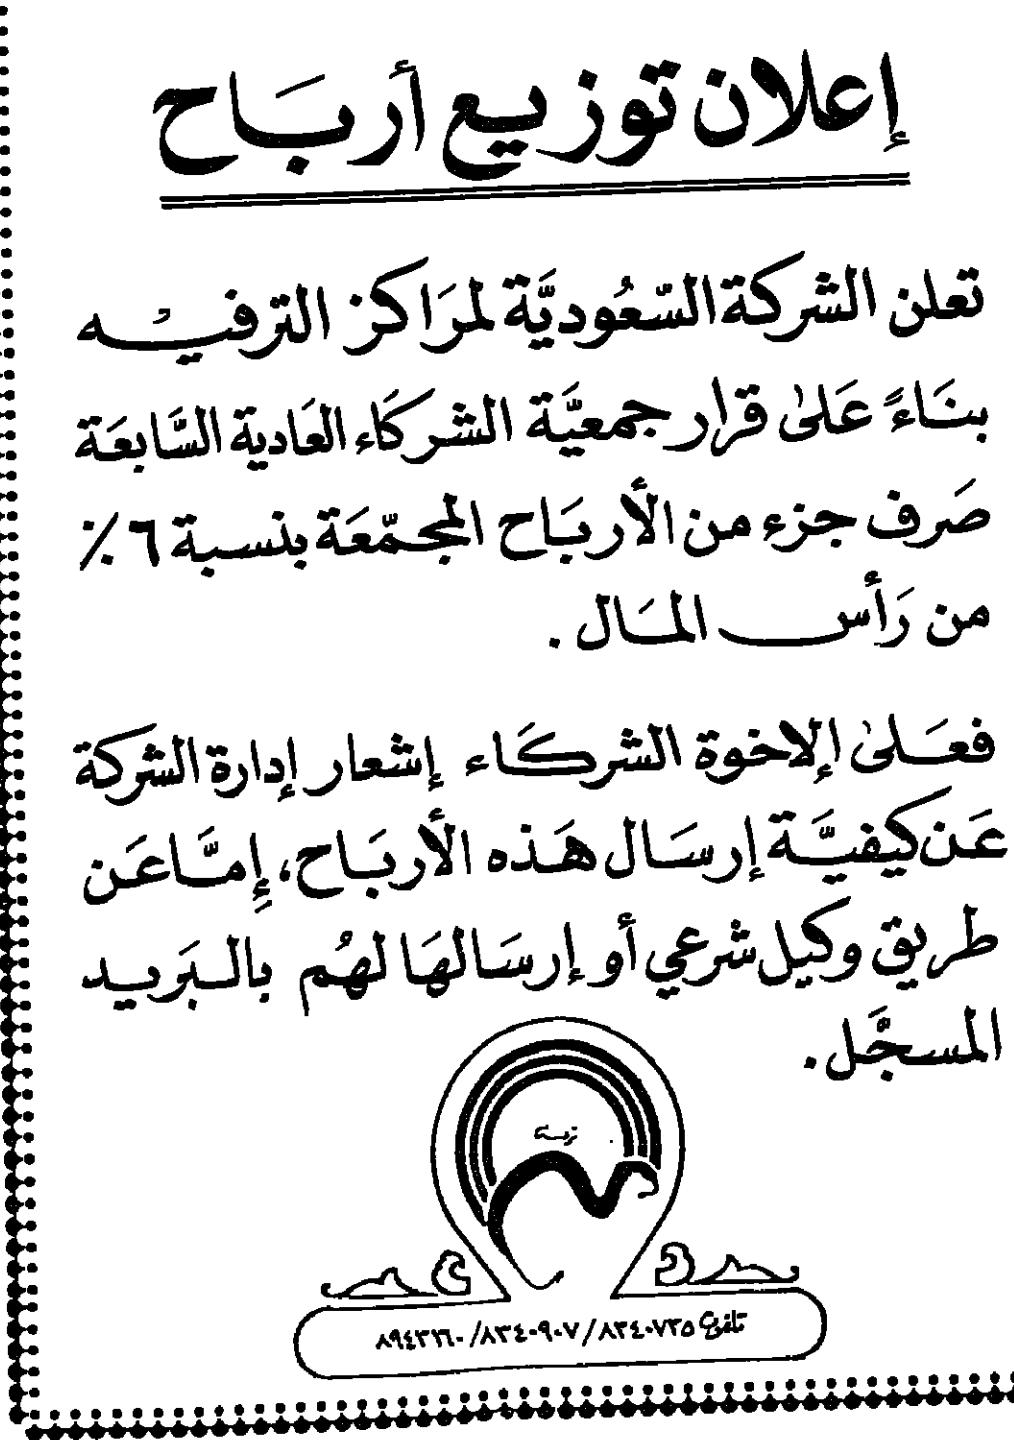 إعلان توزيع أرباح
تعلن الشركة السّعُوديَّة لمرَاكز الترفيه
بنَاءً عَلىٰ قرار جمعيَّة الشركَاء العَادية السَّابعَة
صَرف جزء من الأربَاح المجمّعَة بنسبة ٦ ٪
من رَأس المَال .
فعَلىٰ الإخوة الشركَاء إشعار إدارة الشركة
عَن كيفيَّة إرسَال هَذه الأربَاح، إِمَّا عَن
طريق وكيل شرعي أو إرسَالهَا لهُم بالبَريد
المسجَّل .
تلفون ٨٣٤٠٧٣٥ / ٨٣٤٠٩٠٧ / ٨٩٤٣٦٦٠